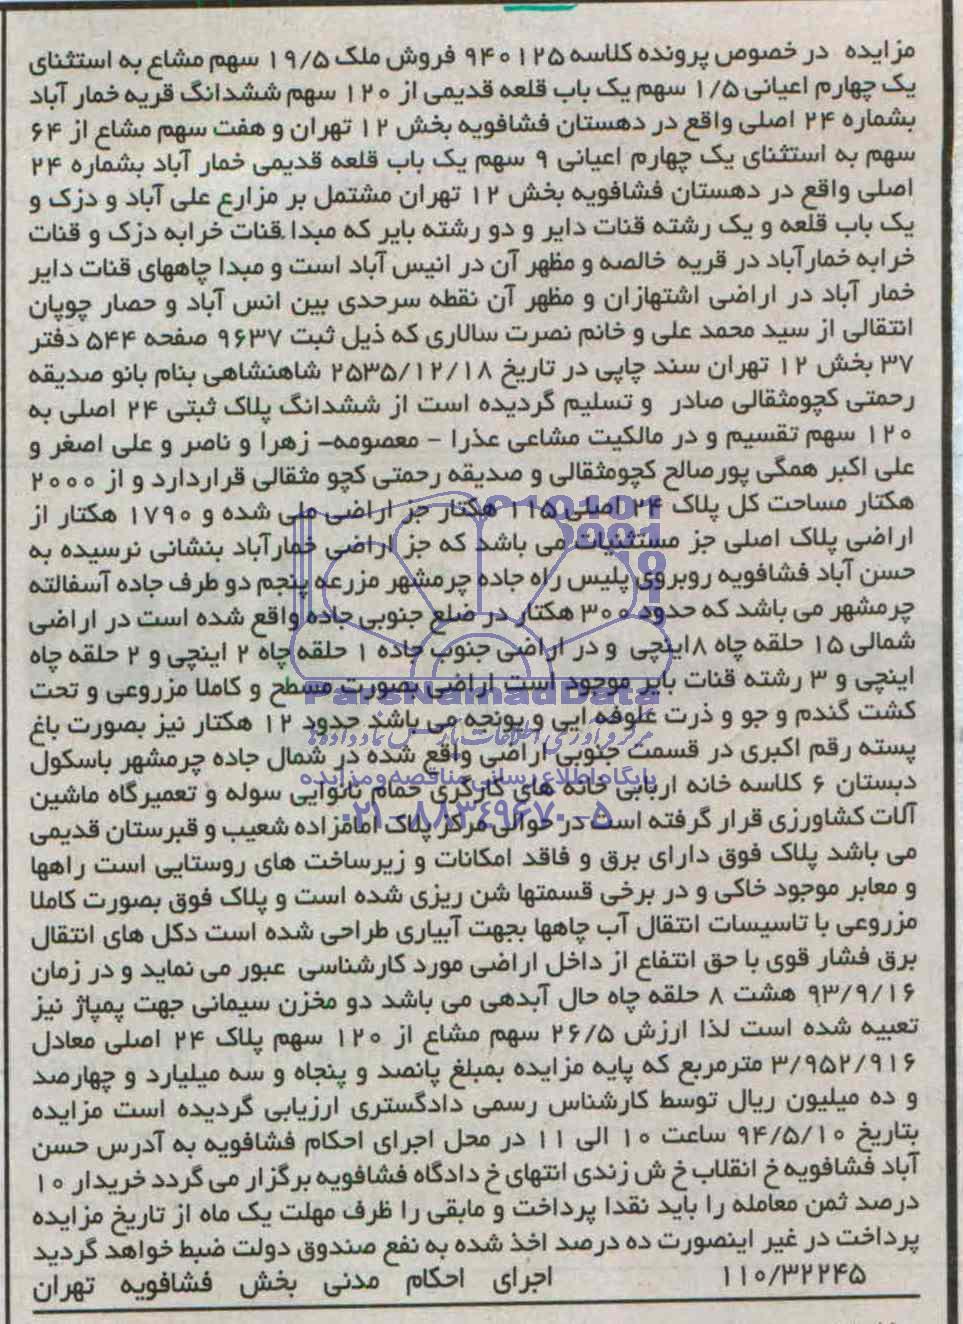 مزایده در خصوص پرونده کلاسه ۹۴۰۱۲۵ فروش ملک ۱۹/۵ سهم مشاع به استثنای
یک چهارم اعیانی ۱/۵ سهم یک باب قلعه قدیمی از ۱۲۰ سهم ششدانگ قریه خمار آباد
بشماره ۲۴ اصلی واقع در دهستان فشافویه بخش ۱۲ تهران و هفت سهم مشاع از ۶۴
سهم به استثنای یک چهارم اعیانی ۹ سهم یک باب قلعه قدیمی خمار آباد بشماره ۲۴
اصلی واقع در دهستان فشافویه بخش ۱۲ تهران مشتمل بر مزارع علی آباد و دزک و
یک باب قلعه و یک رشته قنات دایر و دو رشته بایر که مبدا قنات خرابه دزک و قنات
خرابه خمارآباد در قریه خالصه و مظهر آن در انیس آباد است و مبدا چاههای قنات دایر
خمار آباد در اراضی اشتهازان و مظهر آن نقطه سرحدی بین انس آباد و حصار چوپان
انتقالی از سید محمد علی و خانم نصرت سالاری که ذیل ثبت ۹۶۳۷ صفحه ۵۴۴ دفتر
۳۷ بخش ۱۲ تهران سند چاپی در تاریخ ۲۵۳۵/۱۲/۱۸ شاهنشاهی بنام بانو صدیقه
رحمتی کچومثقالی صادر و تسلیم گردیده است از ششدانگ پلاک ثبتی ۲۴ اصلی به
۱۲۰ سهم تقسیم و در مالکیت مشاعی عذرا - معصومه- زهرا و ناصر و علی اصغر و
علی اکبر همگی پورصالح کچومثقالی و صدیقه رحمتی کچو مثقالی قراردارد و از ۲۰۰۰
هکتار مساحت کل پلاک ۲۴ اصلی ۱۱۵ هکتار جز اراضی ملی شده و ۱۷۹۰ هکتار از
اراضی پلاک اصلی جز مستثنیات می باشد که جز اراضی خمارآباد بنشانی نرسیده به
حسن آباد فشافویه روبروی پلیس راه جاده چرمشهر مزرعه پنجم دو طرف جاده آسفالته
چرمشهر می باشد که حدود ۳۰۰ هکتار در ضلع جنوبی جاده واقع شده است در اراضی
شمالی ۱۵ حلقه چاه ۸اینچی و در اراضی جنوب جاده ۱ حلقه چاه ۲ اینچی و ۲ حلقه چاه
اینچی و ۳ رشته قنات بایر موجود است اراضی بصورت مسطح و کاملا مزروعی و تحت
کشت گندم و جو و ذرت علوفه ایی و یونجه می باشد حدود ۱۲ هکتار نیز بصورت باغ
پسته رقم اکبری در قسمت جنوبی اراضی واقع شده در شمال جاده چرمشهر باسکول
دبستان ۶ کلاسه خانه اربابی خانه های کارگری حمام نانوایی سوله و تعمیرگاه ماشین
آلات کشاورزی قرار گرفته است در حوالی مرکز پلاک امامزاده شعیب و قبرستان قدیمی
می باشد پلاک فوق دارای برق و فاقد امکانات و زیرساخت های روستایی است راهها
و معابر موجود خاکی و در برخی قسمتها شن ریزی شده است و پلاک فوق بصورت کاملا
مزروعی با تاسیسات انتقال آب چاهها بجهت آبیاری طراحی شده است دکل های انتقال
برق فشار قوی با حق انتفاع از داخل اراضی مورد کارشناسی عبور می نماید و در زمان
۹۳/۹/۱۶ هشت ۸ حلقه چاه حال آبدهی می باشد دو مخزن سیمانی جهت پمپاژ نیز
تعبیه شده است لذا ارزش ۲۶/۵ سهم مشاع از ۱۲۰ سهم پلاک ۲۴ اصلی معادل
۳/۹۵۲/۹۱۶ مترمربع که پایه مزایده بمبلغ پانصد و پنجاه و سه میلیارد و چهارصد
و ده میلیون ریال توسط کارشناس رسمی دادگستری ارزیابی گردیده است مزایده
بتاریخ ۹۴/۵/۱۰ ساعت ۱۰ الی ۱۱ در محل اجرای احکام فشافویه به آدرس حسن
آباد فشافویه خ انقلاب خ ش زندی انتهای خ دادگاه فشافویه برگزار می گردد خریدار ۱۰
درصد ثمن معامله را باید نقدا پرداخت و مابقی را ظرف مهلت یک ماه از تاریخ مزایده
پرداخت در غیر اینصورت ده درصد اخذ شده به نفع صندوق دولت ضبط خواهد گردید
۱۱۰/۳۲۲۴۵ اجرای احکام مدنی بخش فشافویه تهران
ParsNamadData
مرکز فرآوری اطلاعات پارس نماد داده ها
پایگاه اطلاع رسانی مناقصه و مزایده
۰۲۱-۸۸۳۴۹۶۷۰-۵